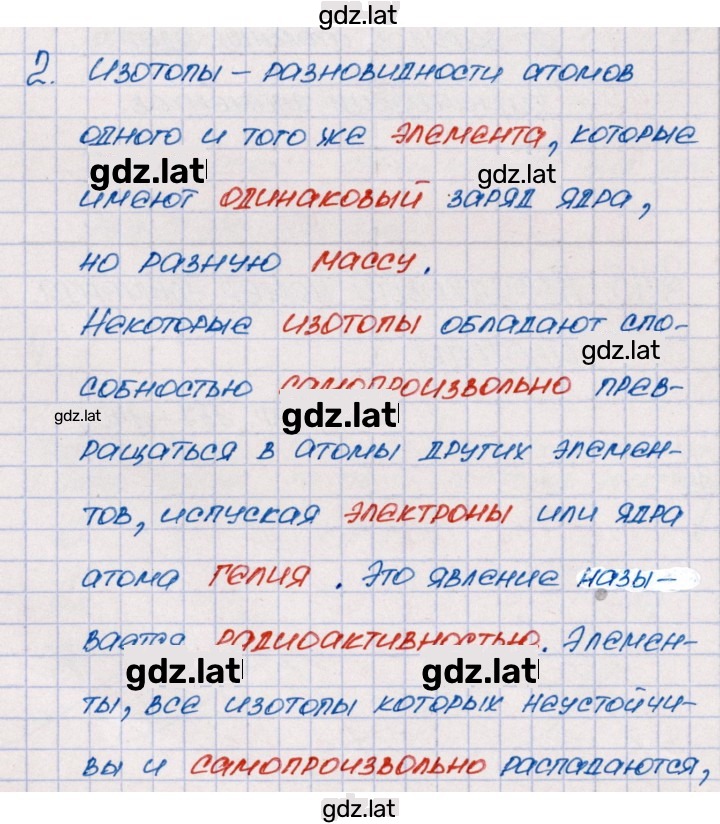 gdz.lat
2. Изотопы – разновидности атомов
одного и того же элемента, которые
gdz.lat
gdz.lat
имеют одинаковый заряд ядра,
но разную массу.
Некоторые изотопы обладают спо-
gdz.lat
собностью самопроизвольно прев-
gdz.lat
gdz.lat
ращаться в атомы других элемен-
тов, испуская электроны или ядра
атома гелия. Это явление назы-
вается радиоактивностью. Элемен-
gdz.lat
gdz.lat
ты, все изотопы которых неустойчи-
вы и самопроизвольно распадаются,
gdz.lat